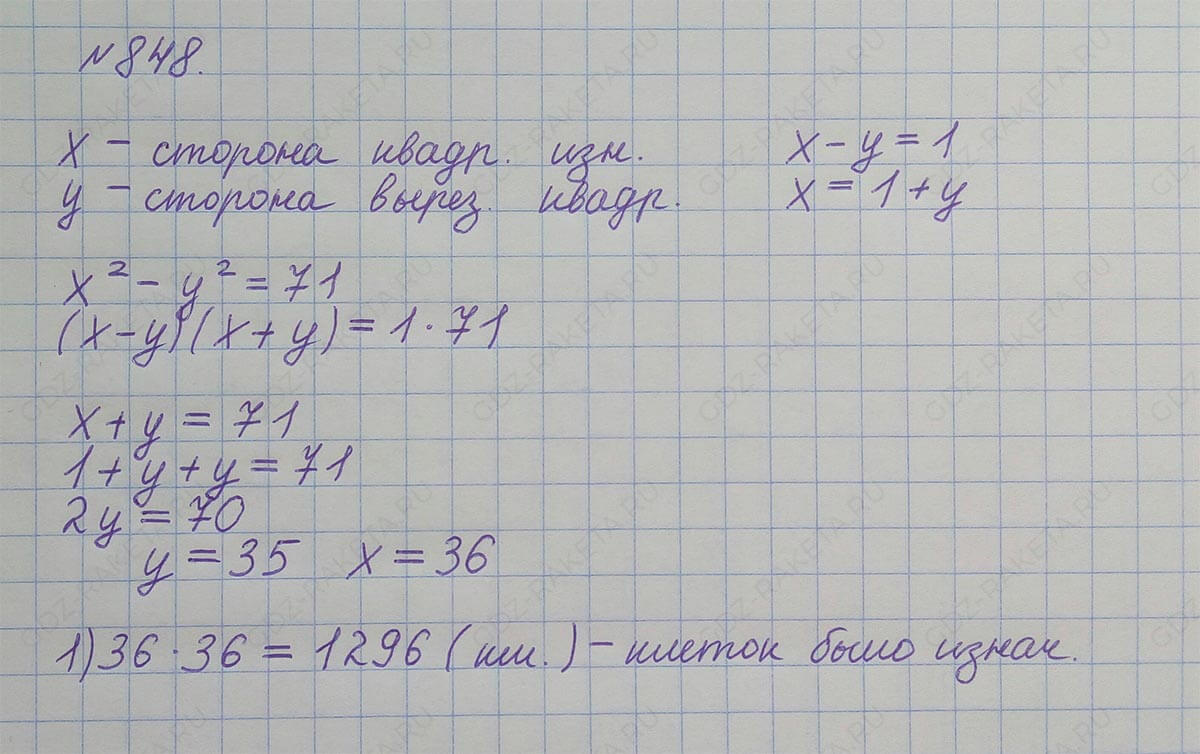 №848.
x – сторона квадр. изн. x – y = 1
y – сторона вырез. квадр. x = 1 + y
x² – y² = 71
(x – y)(x + y) = 1 · 71
x + y = 71
1 + y + y = 71
2y = 70
y = 35 x = 36
1) 36 · 36 = 1296 (кл.) – клеток было изнач.
GDZ-RAKETA.RU